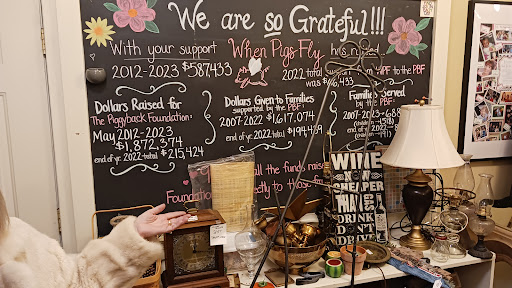 We are so Grateful!!!
With your support When Pigs Fly has raised
2012-2023 $587433
2022 total support from WPF to the PBF
was $116,433
Dollars Raised for
The Piggyback Foundation:
May 2012-2023
$1,872,374
end of yr. 2022-total $215,424
Dollars Given to Families
supported by the PBF:
2007-2022 $1,617,074
end of yr. 2022-total $194,439
Families Served
by the PBF:
2007-2023-
2022-
all the funds raised
Foundation
directly to those
WINE
NOW
CHEAPER
THAN GAS
DRINK
DON'T
DRIVE